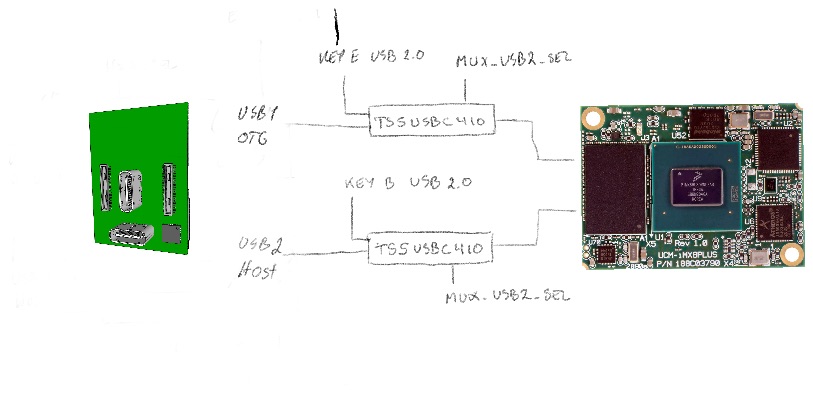 KEY E USB 2.0
MUX_USB2_SEL
USB1
OTG
TS5USBC410
KEY B USB 2.0
USB2
HOST
TS5USBC410
MUX_USB2_SEL
U52
J3 A1
X2
U6
A1 U1
X5 Rev 1.0
UCM-iMX8PLUS
P/N 188C03790 X4